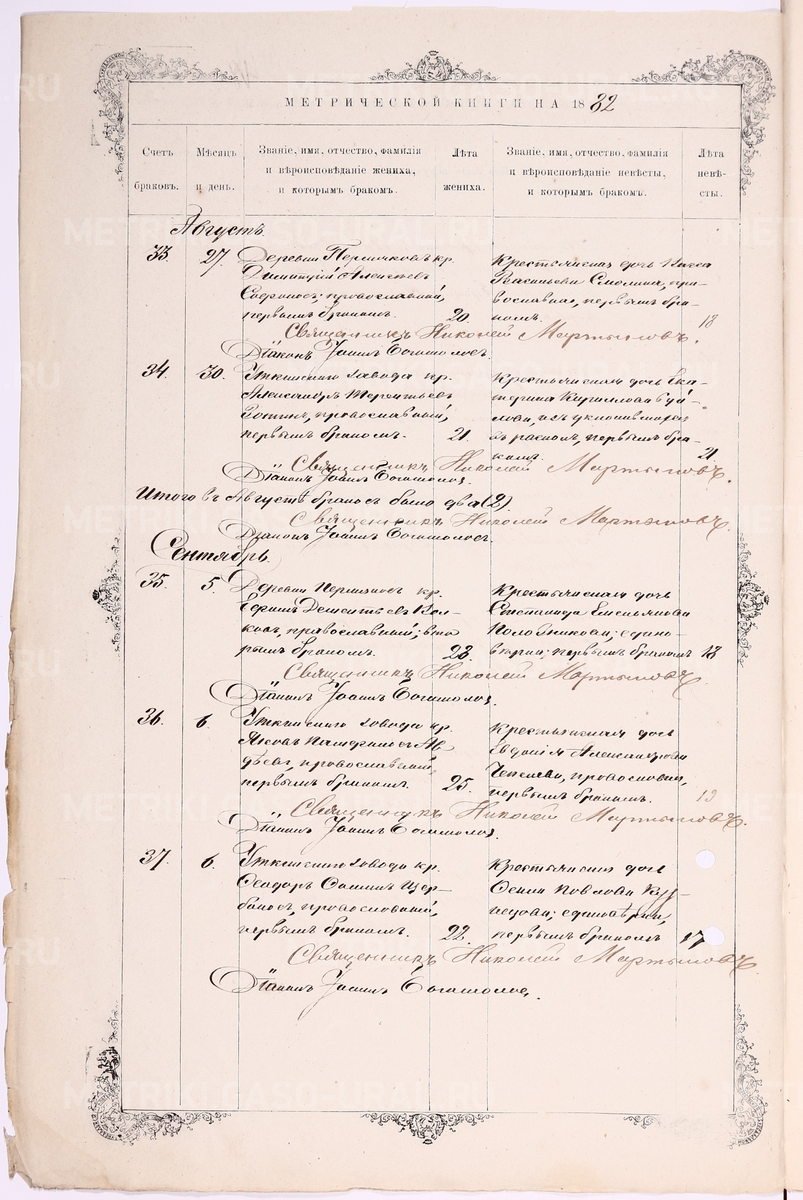 МЕТРИЧЕСКОЙ КНИГИ НА 1882
Счетъ браковъ.
Мѣсяцъ и день.
Званіе, имя, отчество, фамилія и вѣроисповѣданіе жениха, и которымъ бракомъ.
Лѣта жениха.
Званіе, имя, отчество, фамилія и вѣроисповѣданіе невѣсты, и которымъ бракомъ.
Лѣта невѣсты.
Августъ
33. 27. Деревни кр.
Димитрій Алексѣевъ
православный,
первымъ бракомъ. 20.
Крестьянская дочь Васса
Васильева Смолина, пра-
вославная, первымъ бра-
комъ. 18
Священникъ Николай Мартыновъ.
Діаконъ Іоаннъ Богомоловъ.
34. 30. Уткинскаго завода кр.
Александръ Терентьевъ
православный,
первымъ бракомъ. 21.
Крестьянская дочь Ека-
терина Кириллова
первымъ бра-
комъ. 21.
Священникъ Николай Мартыновъ.
Діаконъ Іоаннъ Богомоловъ.
Итого въ Августѣ браковъ было два (2).
Священникъ Николай Мартыновъ.
Діаконъ Іоаннъ Богомоловъ.
Сентябрь
35. 5. Деревни кр.
Ефимъ Дементьевъ Вол-
ковъ, православный; вто-
рымъ бракомъ. 23.
Крестьянская дочь
Емельянова
едино-
вѣрка; первымъ бракомъ 18
Священникъ Николай Мартыновъ.
Діаконъ Іоаннъ Богомоловъ.
36. 6. Уткинскаго завода кр.
Яковъ
православный,
первымъ бракомъ. 25.
Крестьянская дочь
Евдокія Александрова
Чепелева, православная,
первымъ бракомъ. 19
Священникъ Николай Мартыновъ.
Діаконъ Іоаннъ Богомоловъ.
37. 6. Уткинскаго завода кр.
Ѳеодоръ Щер-
баковъ, православный,
первымъ бракомъ. 22.
Крестьянская дочь
Павлова Куз-
нецова; единовѣрка,
первымъ бракомъ 17
Священникъ Николай Мартыновъ.
Діаконъ Іоаннъ Богомоловъ.